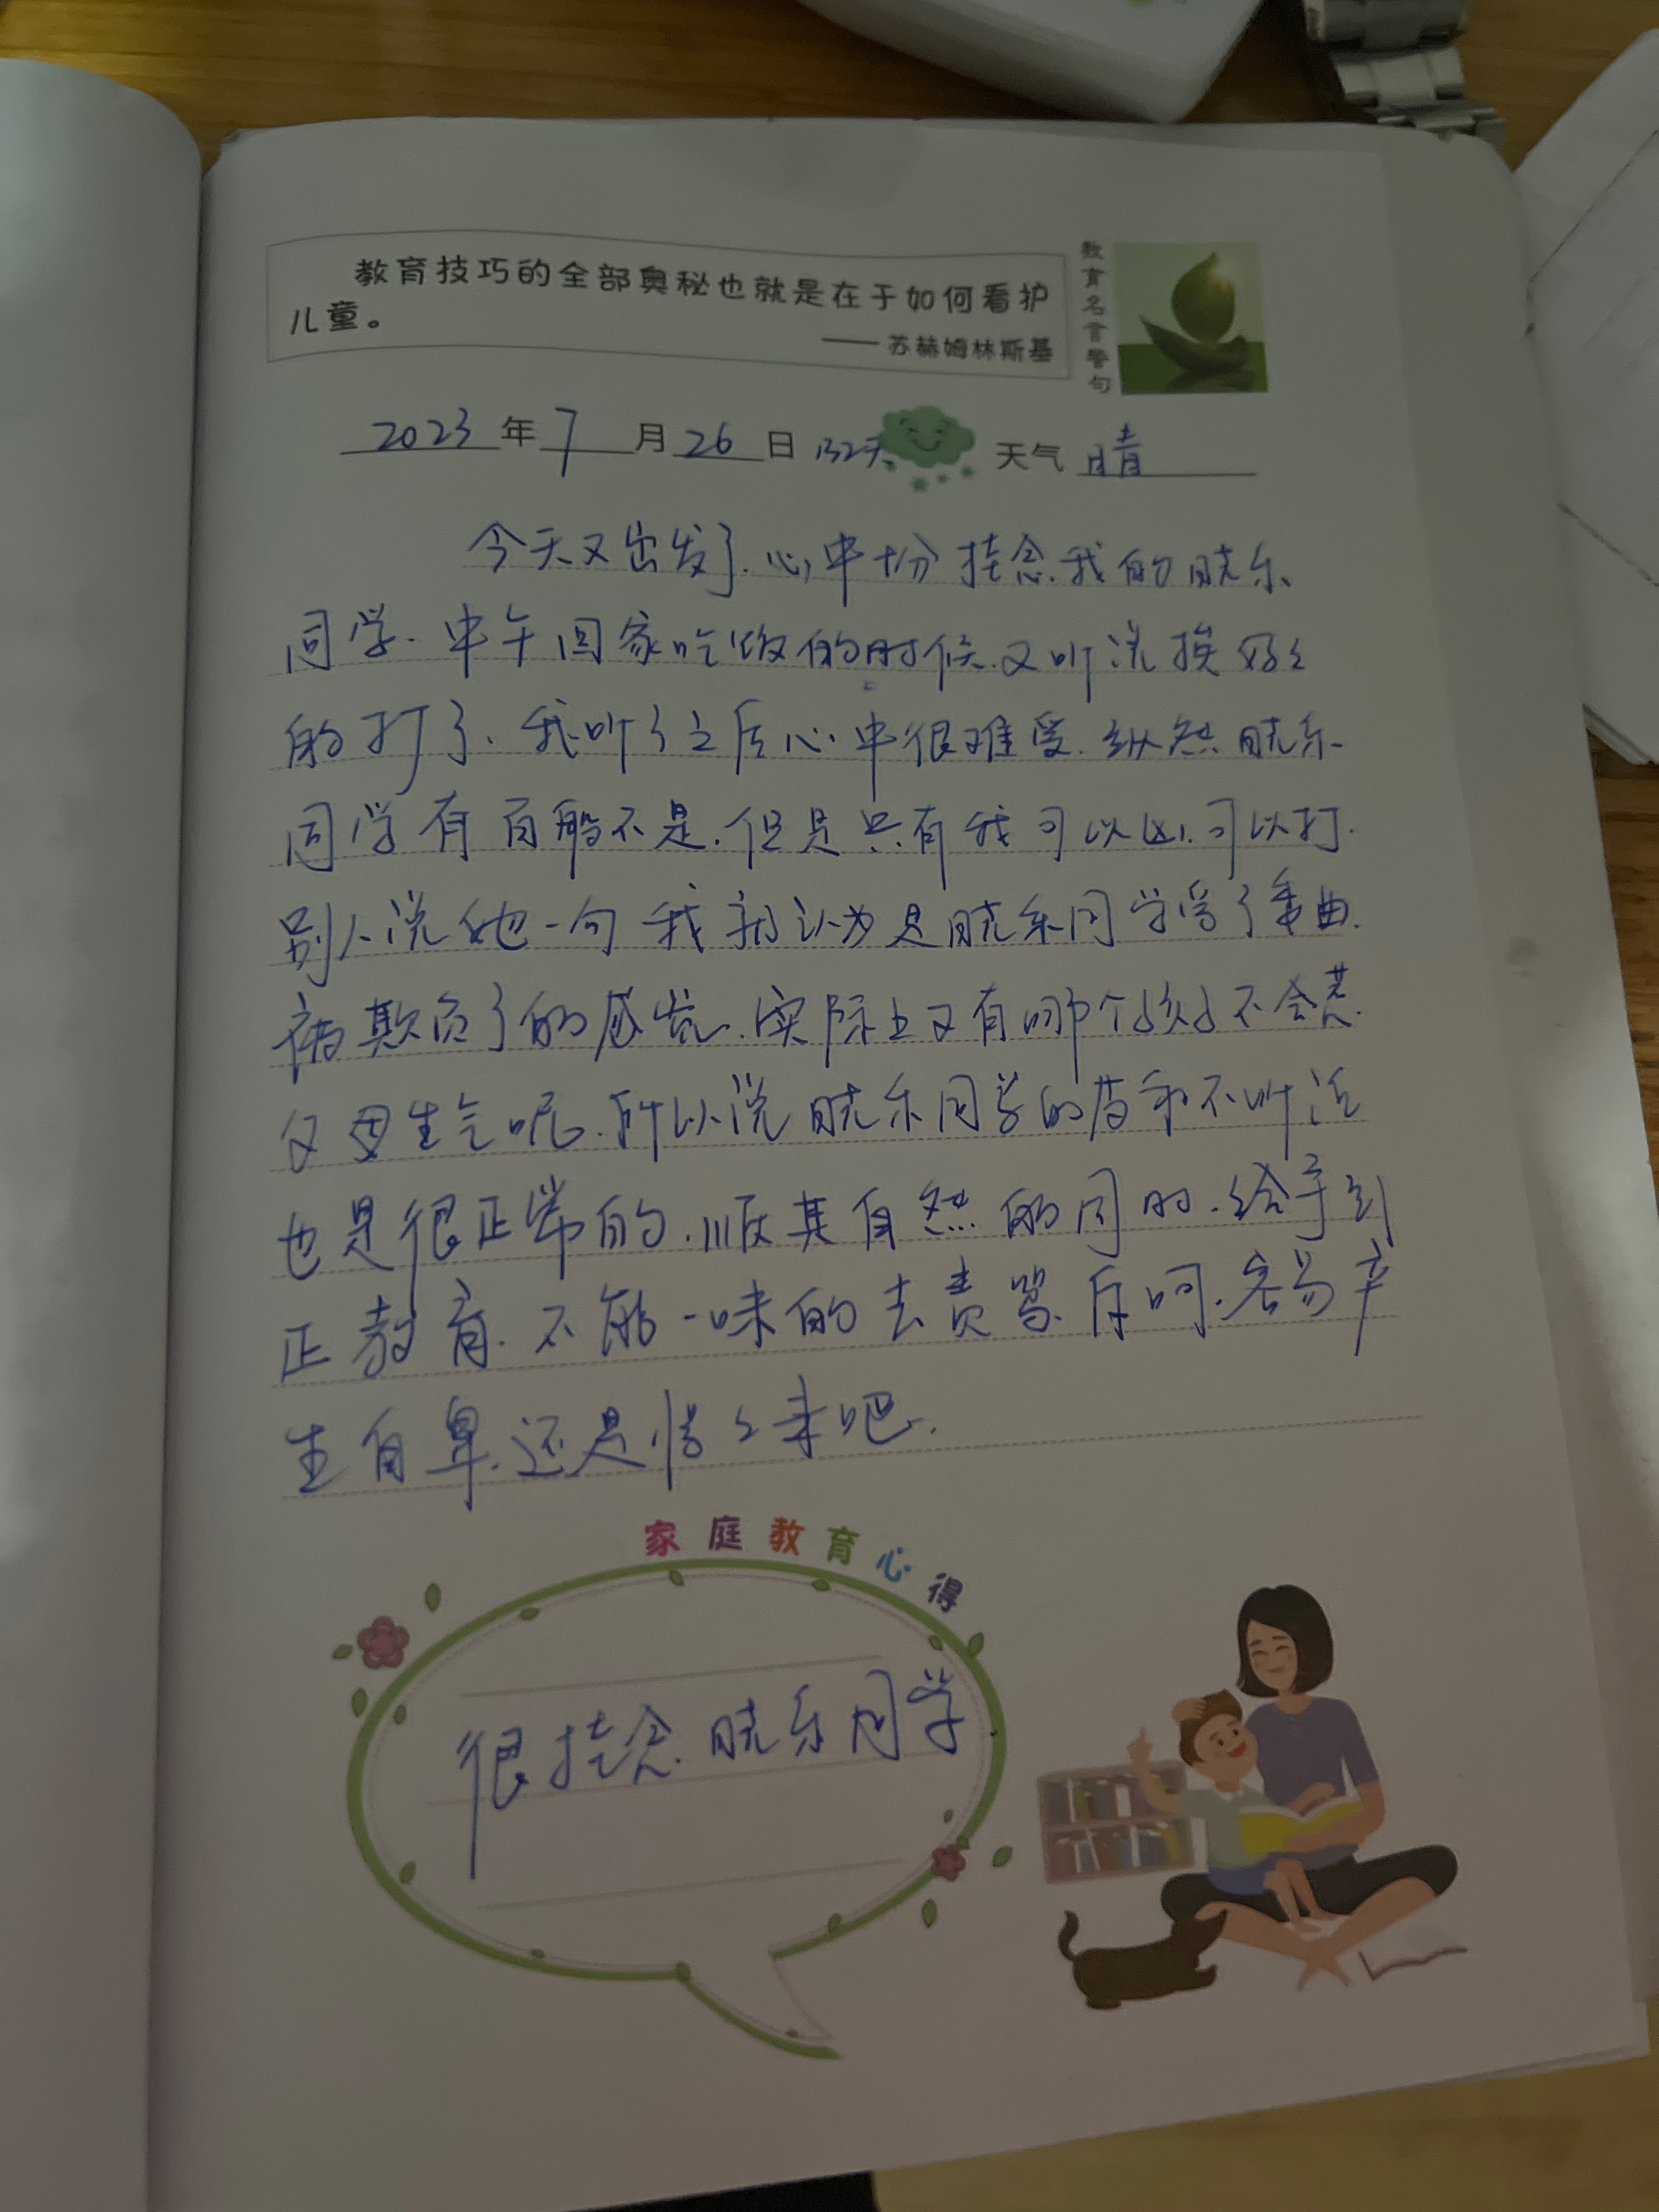 教育技巧的全部奥秘也就是在于如何看护
儿童。
——苏赫姆林斯基
教育名言警句
2023年7月26日 132天 天气 晴
今天又出发了.心中十分挂念我的晓乐
同学.中午回家吃饭的时候.又听说挨
的打了.我听了之后心中很难受.纵然晓乐
同学有百般不是.但是只有我可以凶.可以打.
别人说她一句 我都认为是晓乐同学受了委曲.
被欺负了的感觉.实际上又有哪个孩子不会惹
父母生气呢.所以说晓乐同学的 不听话
也是很正常的.顺其自然的同时.给予到
正教育.不能一味的去责骂.斥呵.容易产
生自卑.还是慢々来吧.
家庭教育心得
很挂念晓乐同学